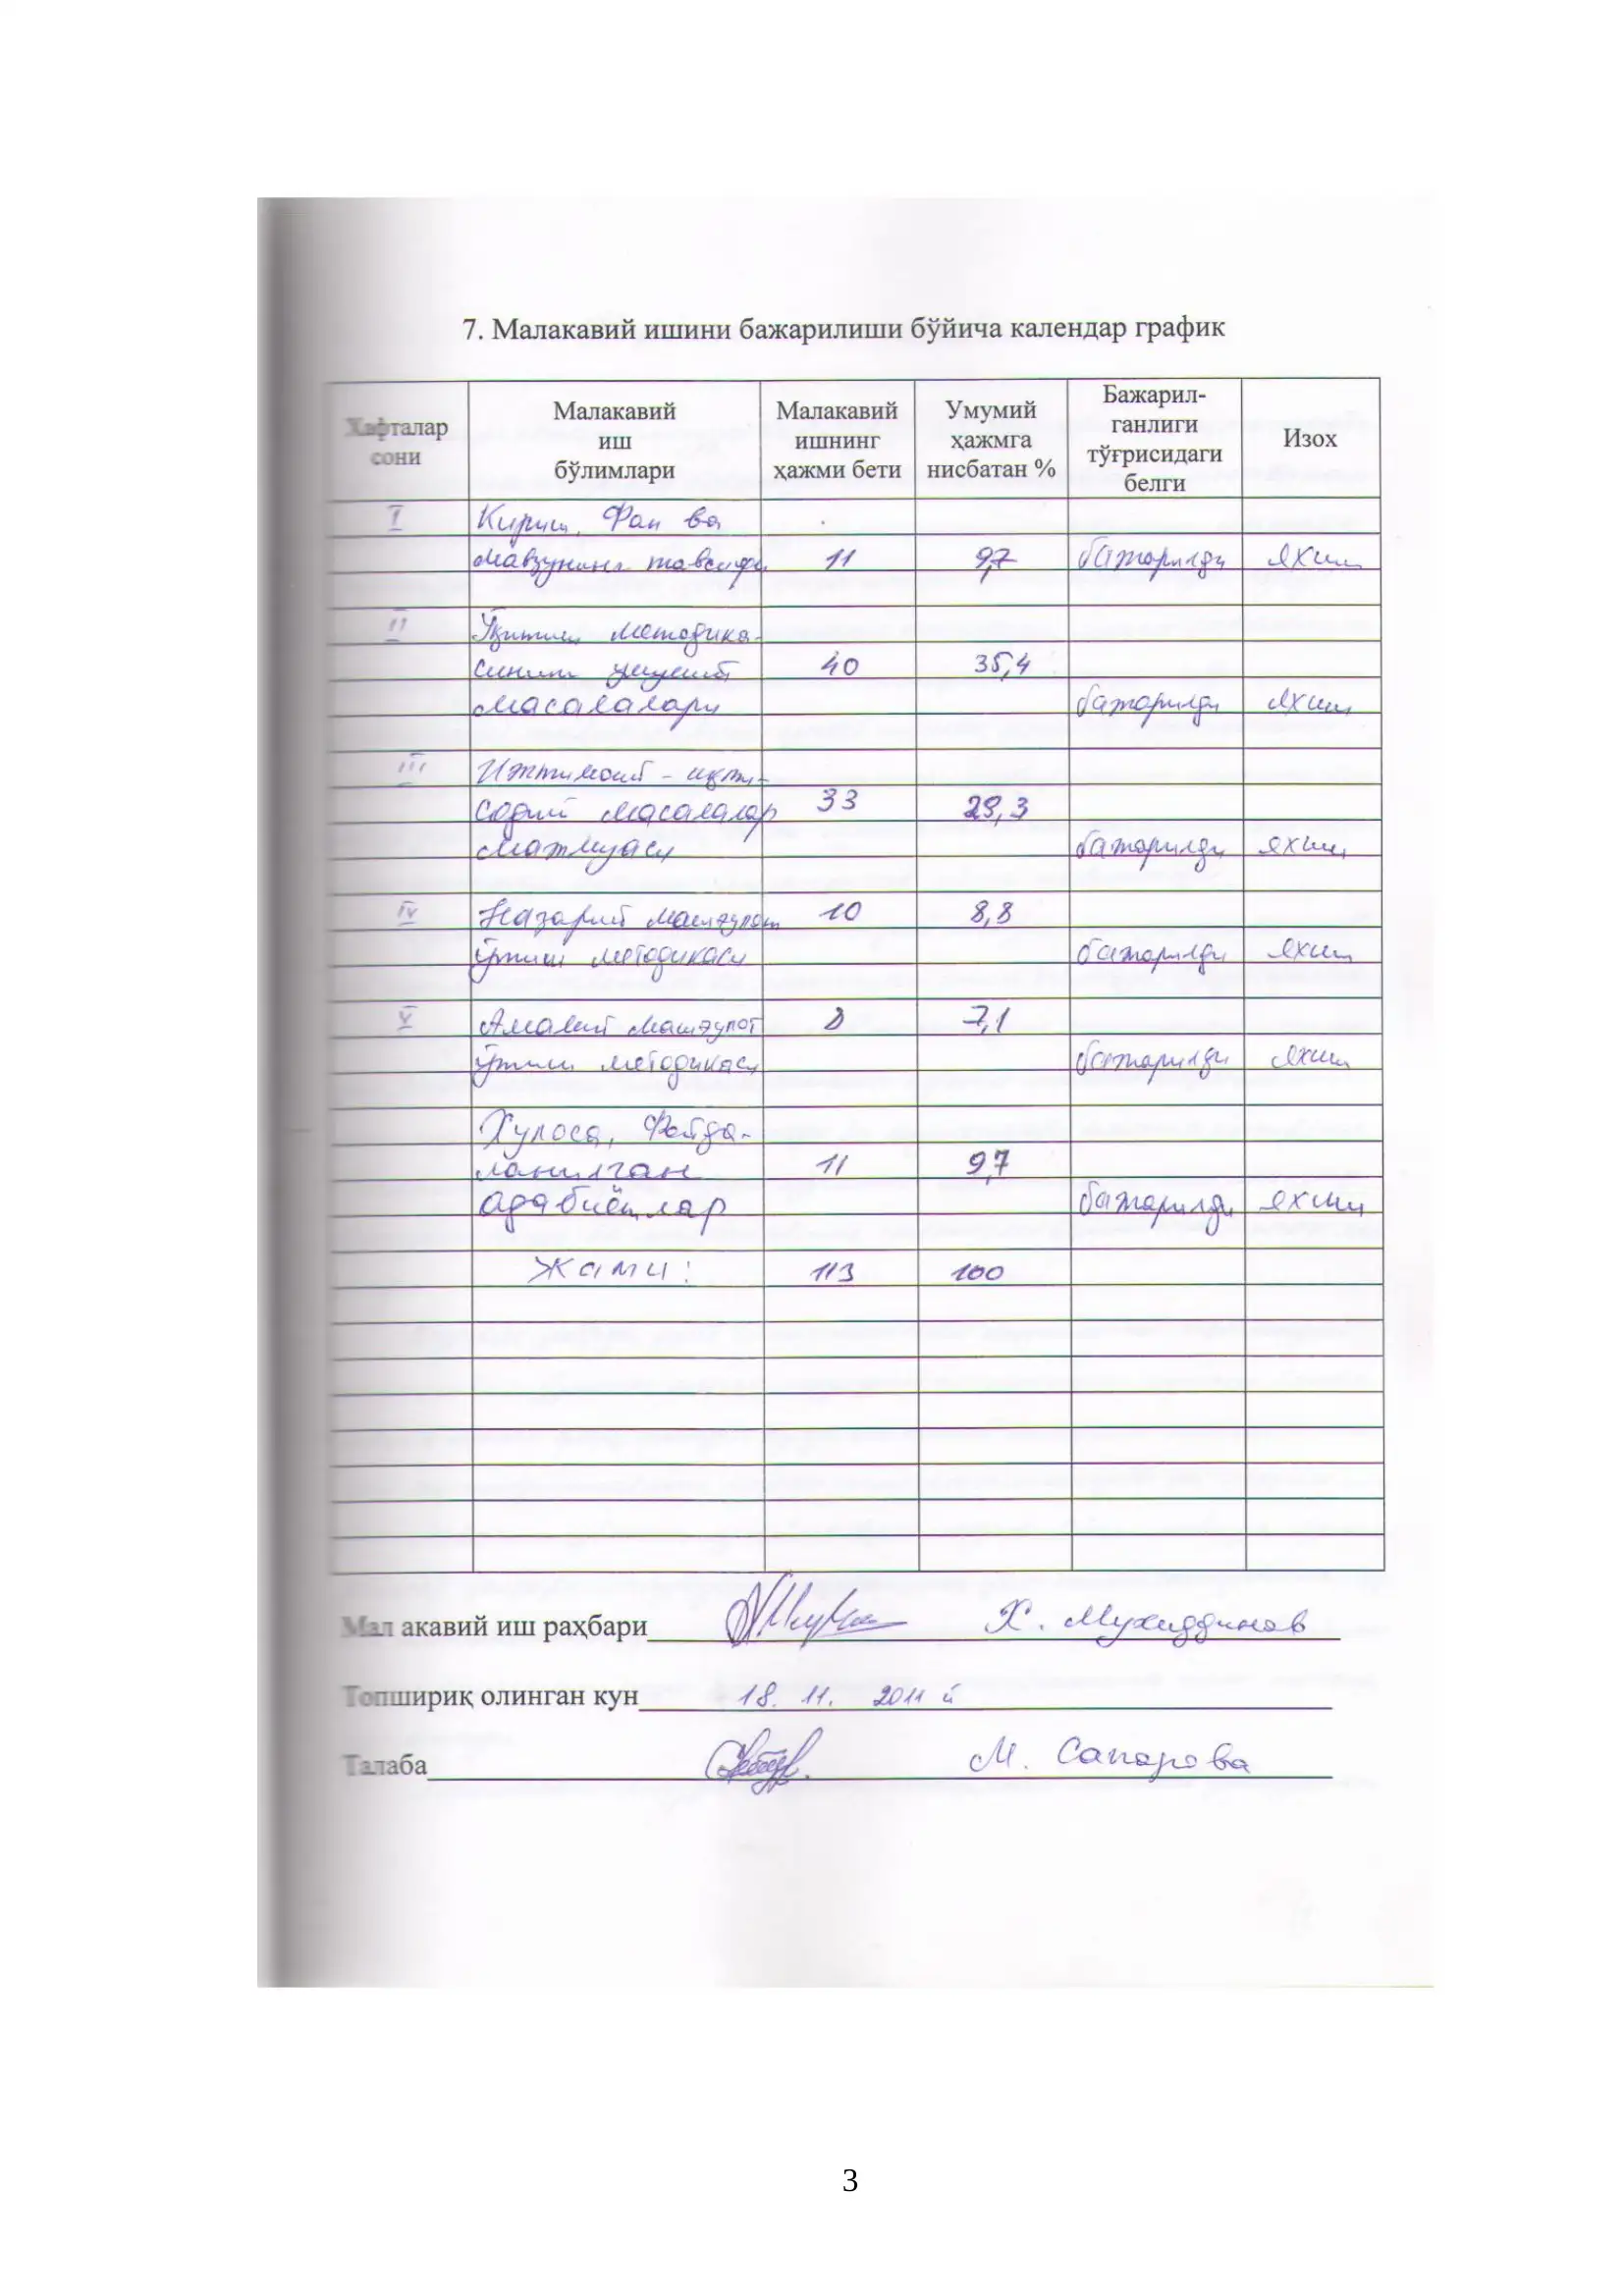 7. Малакавий ишини бажарилиши бўйича календар график
Хафталар сони
Малакавий иш бўлимлари
Малакавий ишнинг ҳажми бети
Умумий ҳажмга нисбатан %
Бажарил-ганлиги тўғрисидаги белги
Изох
I Кириш. Фан ва
мавзунинг тавсифи 11 9,7 бажарилди яхши
II Ўқитиш методика-
сининг умумий 40 35,4
масалалари бажарилди яхши
III Ижтимоий - иқти-
содий масалалар 33 29,3
мажмуаси бажарилди яхши
IV Назарий машғулот 10 8,8
ўтиш методикаси бажарилди яхши
V Амалий машғулот 8 7,1
ўтиш методикаси бажарилди яхши
Хулоса, Фойда-
ланилган 11 9,7
адабиётлар бажарилди яхши
Жами: 113 100
Мал акавий иш раҳбари Х. Мухиддинов
Топшириқ олинган кун 18. 11. 2011 й
Талаба М. Сапарова
3